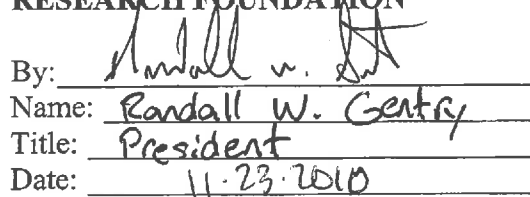 RESEARCH FOUNDATION
By:
Name: Randall W. Gentry
Title: President
Date: 11.23.2010